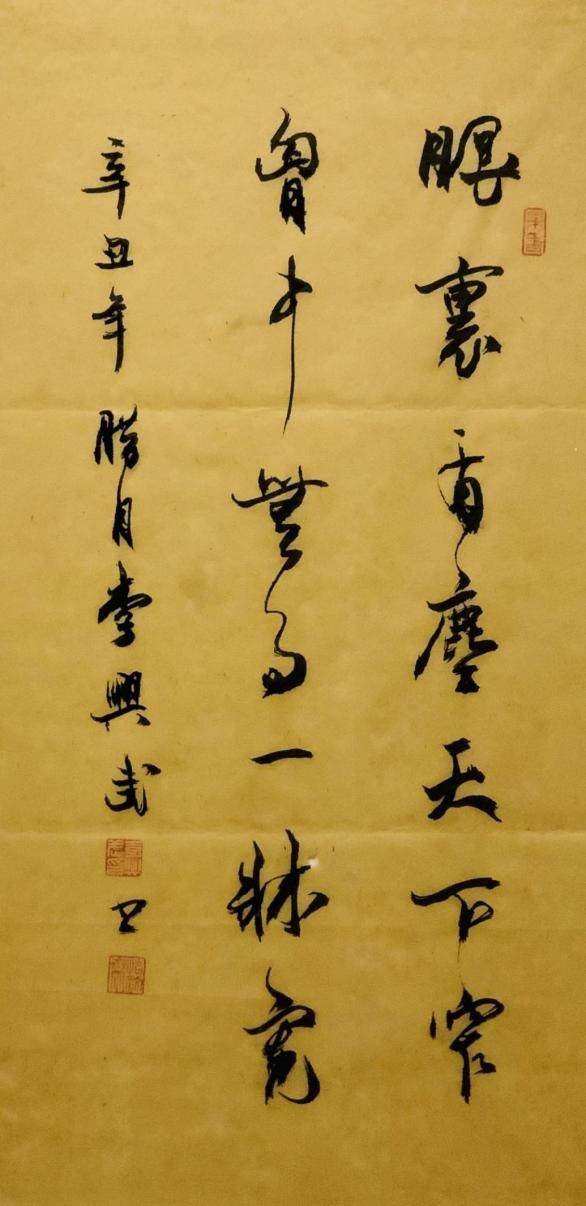 眼裏有塵天下窄
胷中無事一牀寬
辛丑年臘月李興武
書